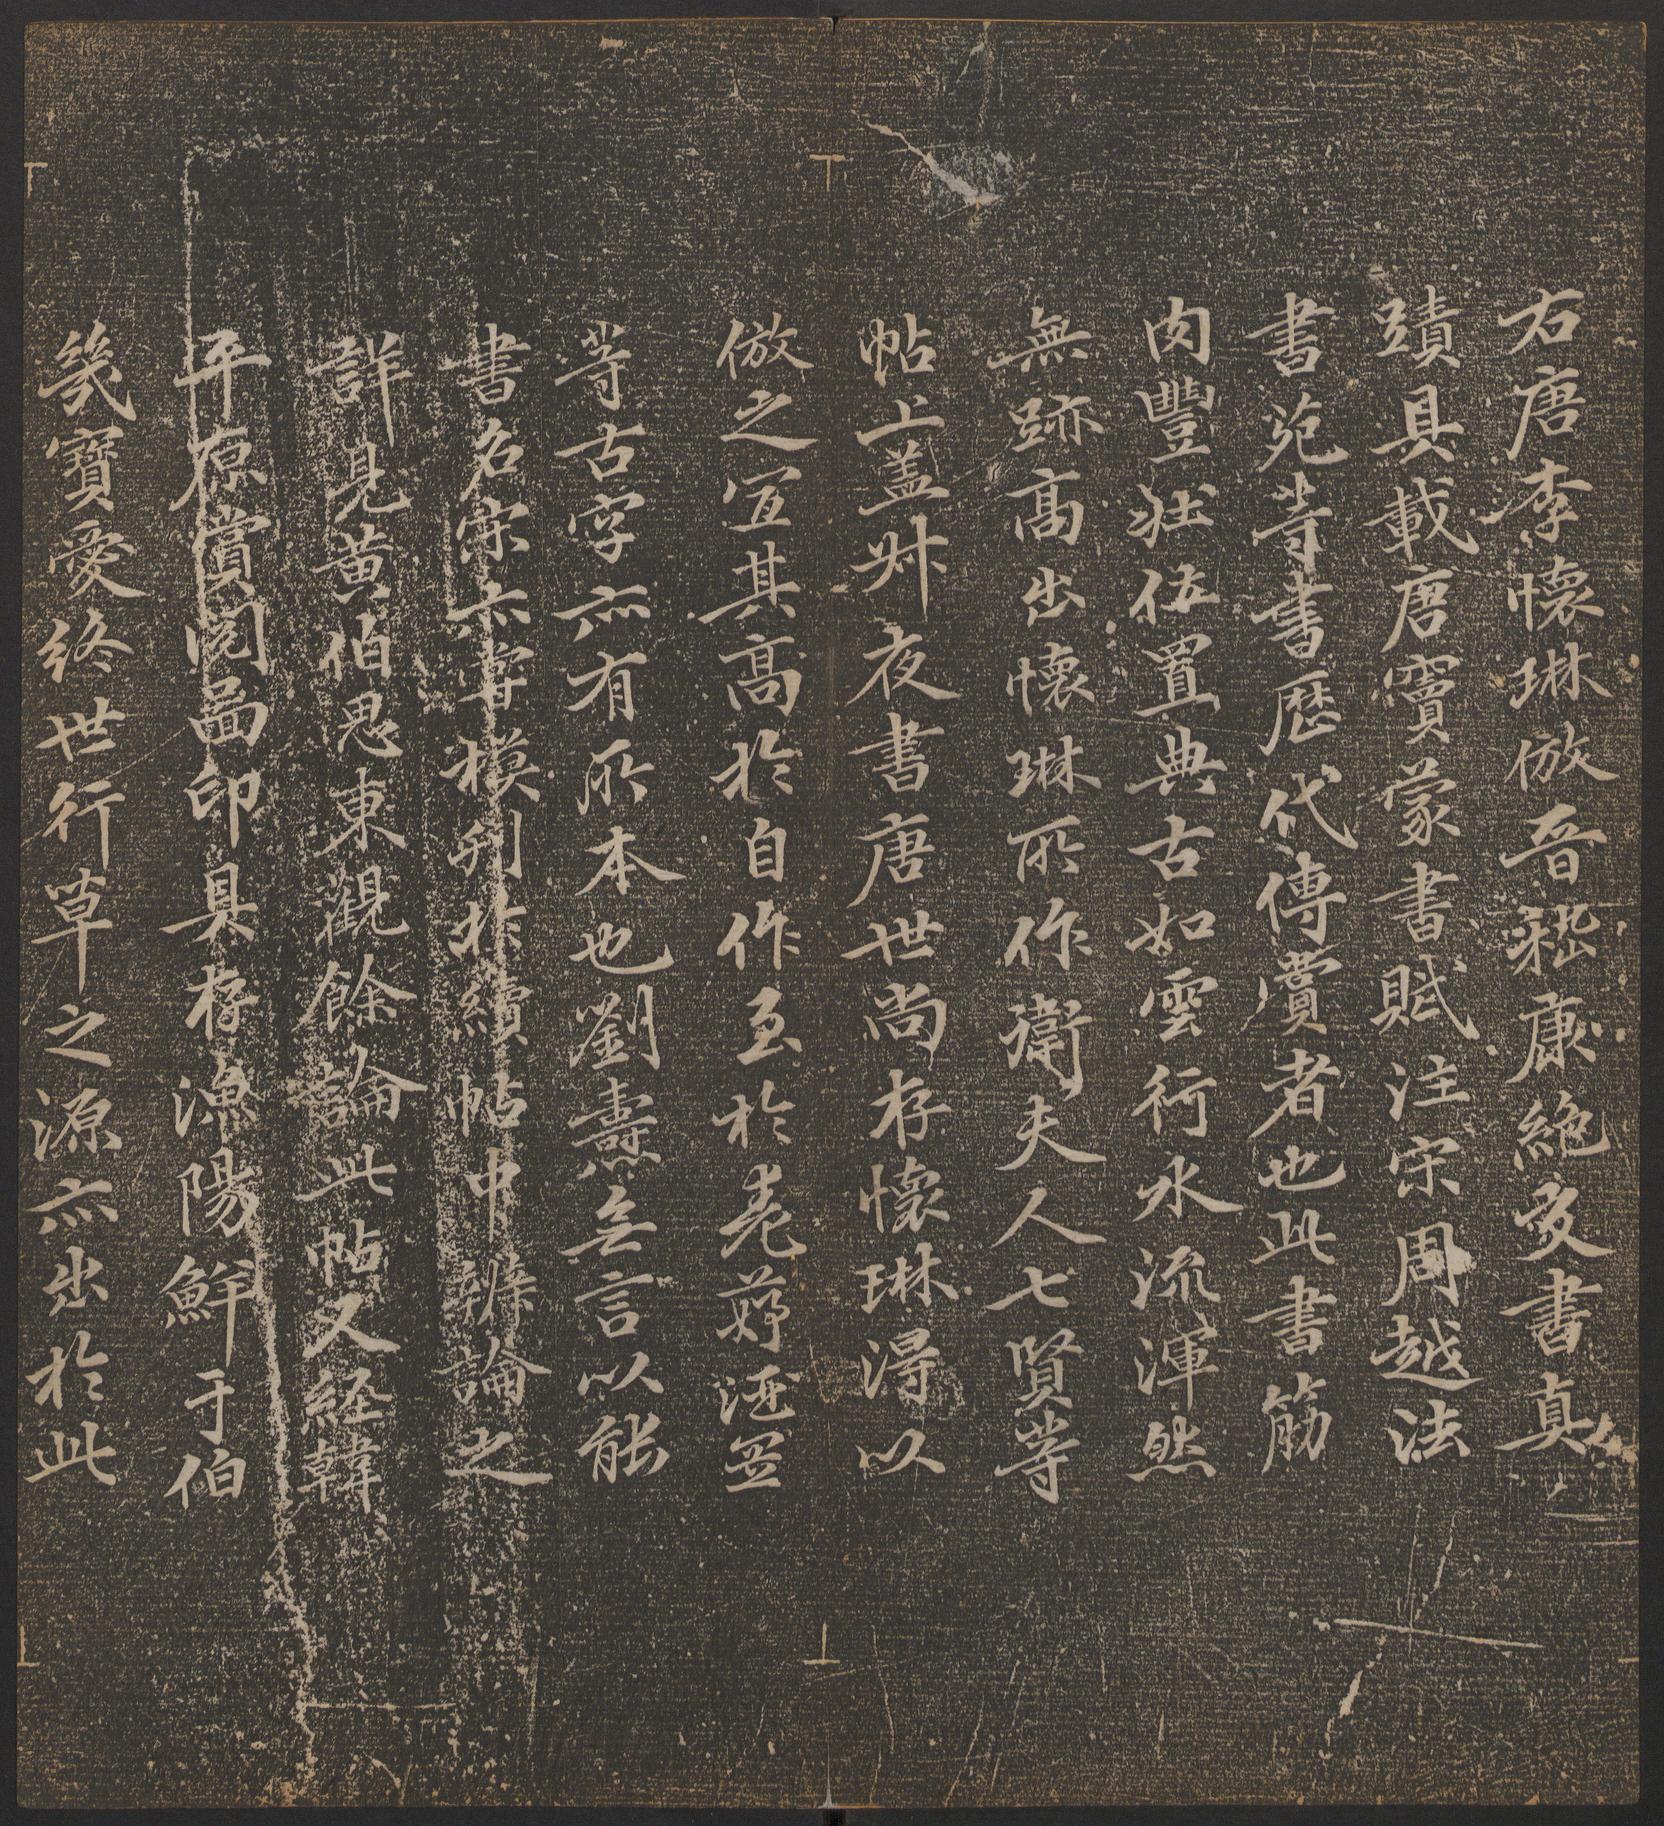 右唐李懷琳倣晉嵇康絶交書真
蹟具載唐竇蒙書賦注宋周越法
書苑等書歷代傳賞者也此書筋
肉豐壯位置典古如雲行水流渾然
無跡高出懷琳所作衛夫人七賢等
帖上蓋叔夜書唐世尚存懷琳得以
倣之宜其高於自作至於
等古字亦有所本也劉燾無言以能
書名宋亦嘗模刊於續帖中辨論之
詳見黄伯思東觀餘論此帖又經韓
平原賞閱畾印具存漁陽鮮于伯
幾寶愛終世行草之源亦出於此